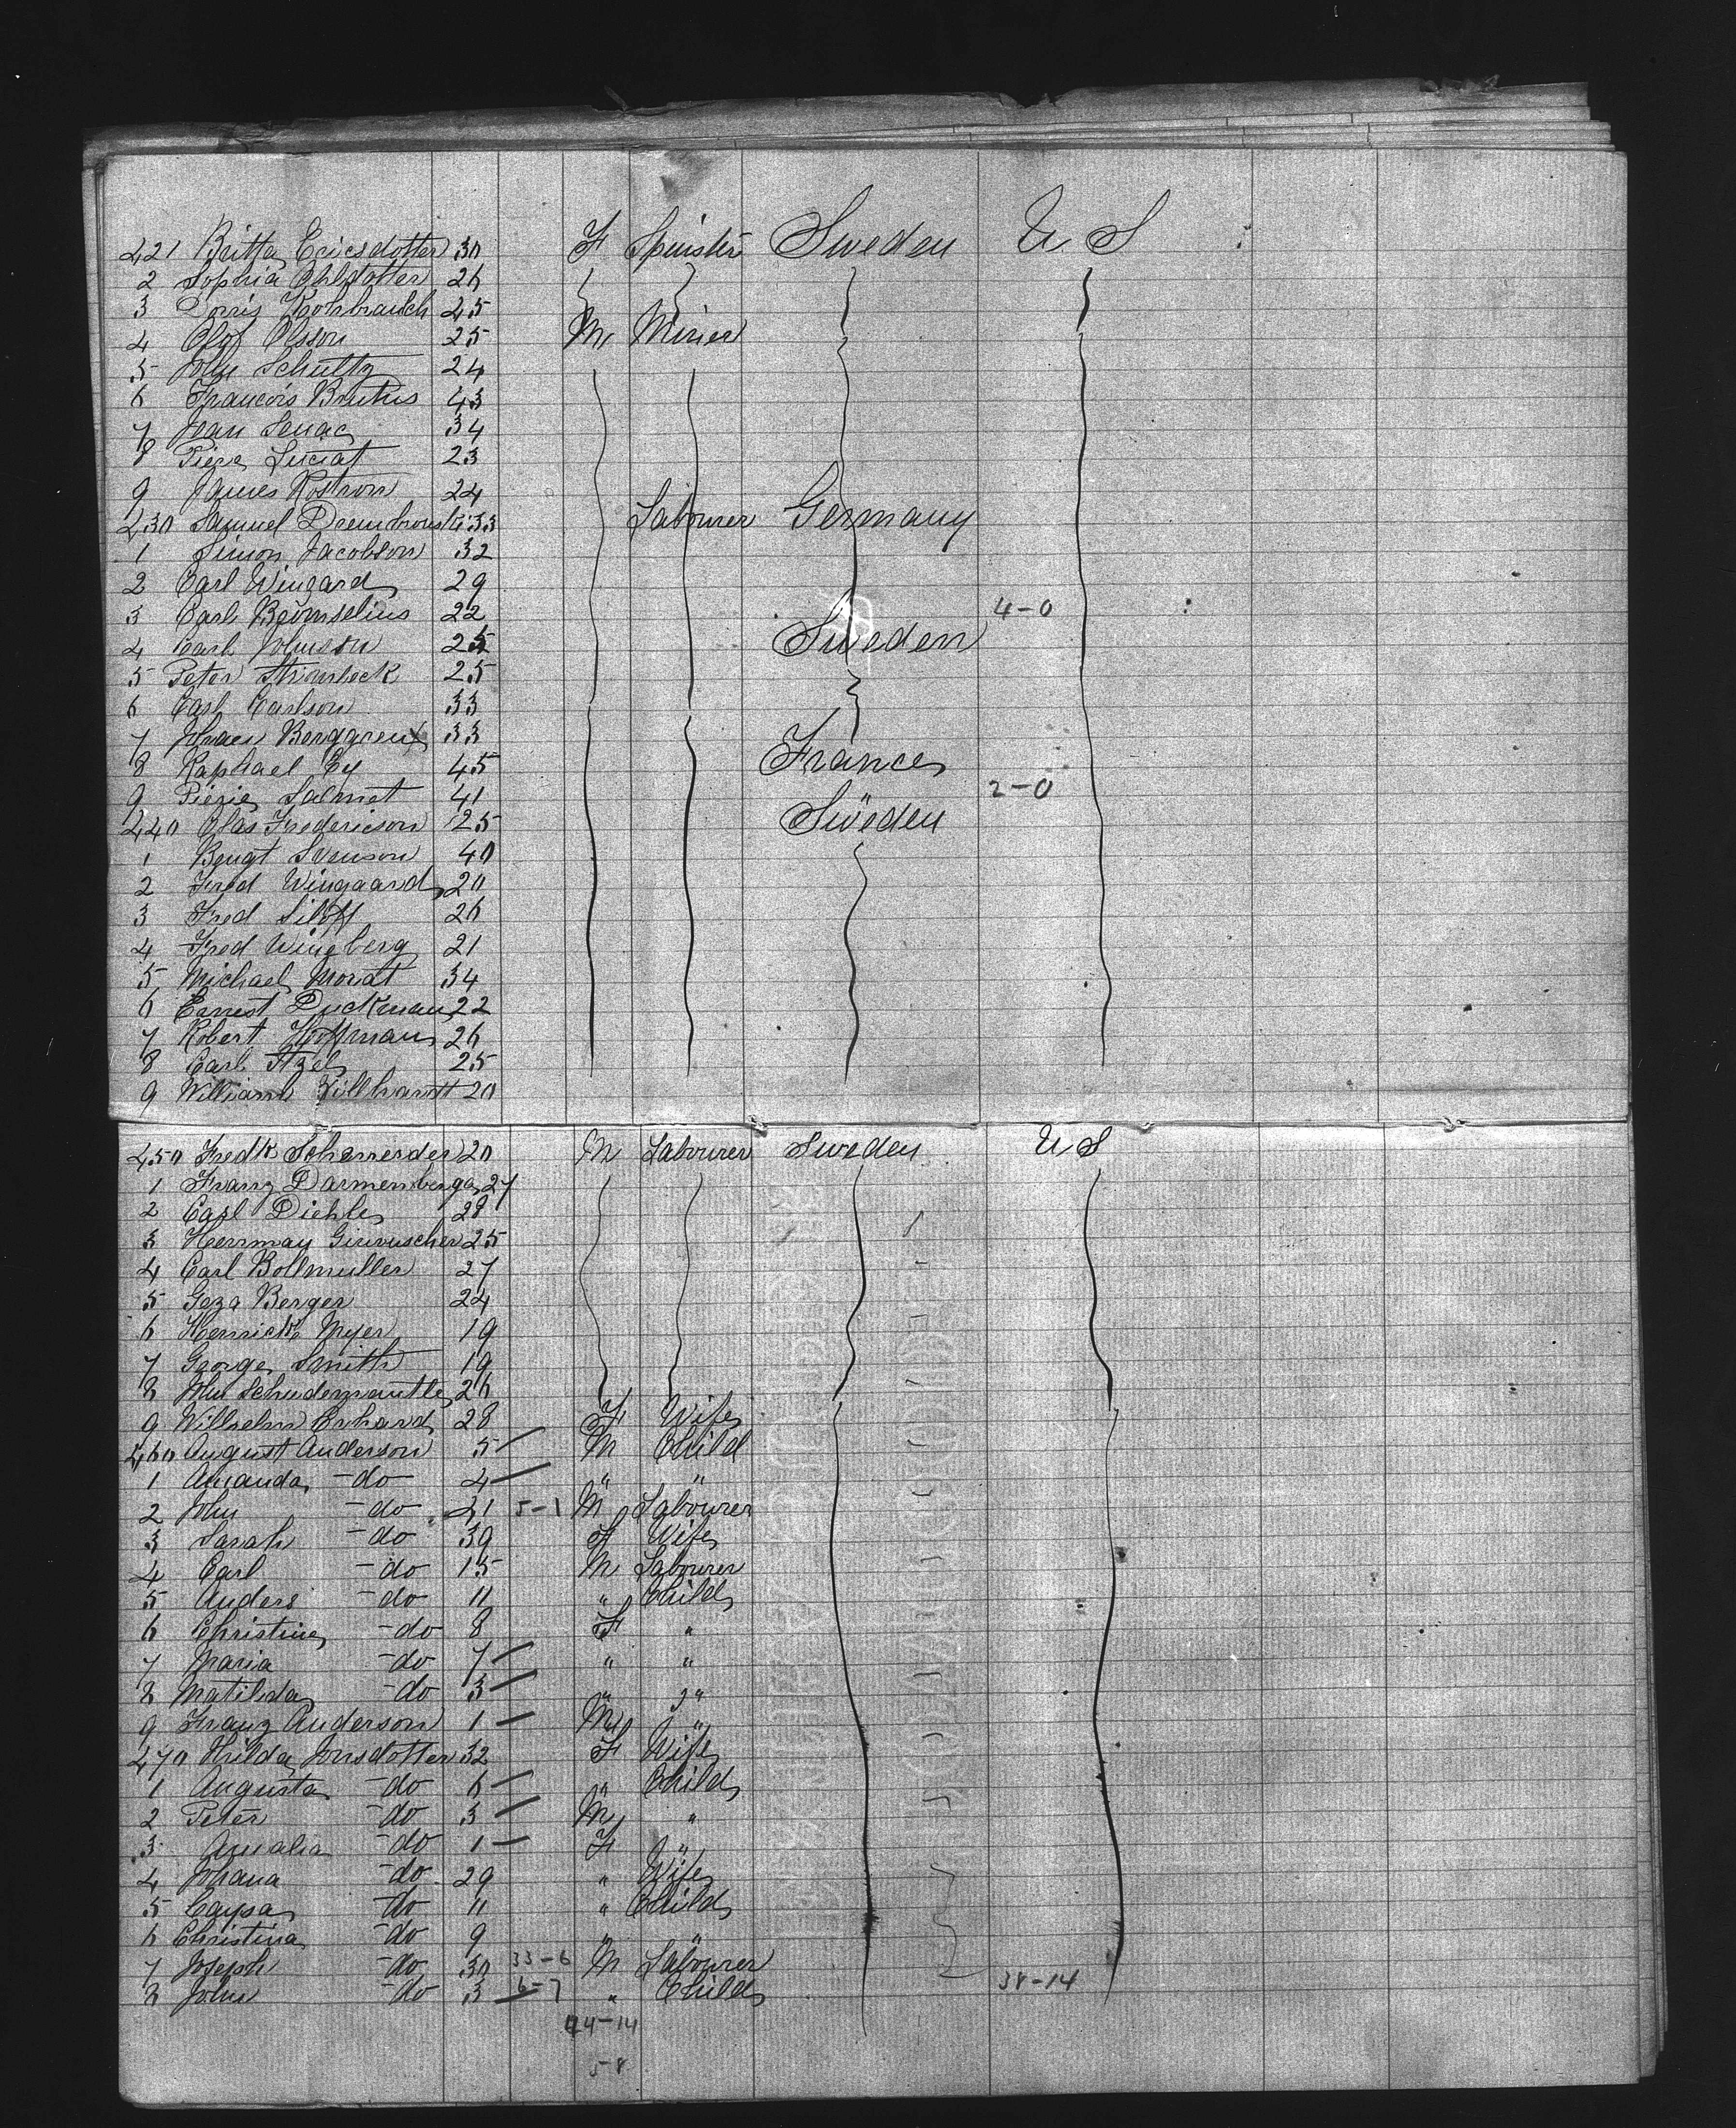 421 Britta Ericsdotter 30 F Spinster Sweden U S
2 Sophia 26
3 Dorris Kohrbrautch 45
4 Olof Olsson 25 M Miner
5 John Schultz 24
6 Francois Brutus 43
7 Jean Senac 34
8 Piere Luciat 23
9 James Rostron 24
430 Samuel 33 Labourer Germany
1 Simon Jacobson 32
2 Carl Wingard 29
3 Carl 22 4-0
4 Carl Johnson 25 Sweden
5 Peter 25
6 Carl Carlson 33
7 Berggren 33
8 Raphael Ey 45 France
9 Pierie Salmet 41 2-0
440 Olas Fredericson 25 Sweden
1 Bengt Svenson 40
2 Fred Wingaard 20
3 Fred 26
4 Fred Wingberg 21
5 Michael Morat 34
6 Earnest Duckman 22
7 Robert Hoffman 26
8 Carl 25
9 William 20
450 Fredk 20 M Labourer Sweden U S
1 Franz 27
2 Carl Diehle 28
3 25
4 Carl Bollmuller 27
5 Geza Berger 24
6 Henrick Myer 19
7 George Smith 19
8 John 26
9 Wilhelm Erhard 28 F Wife
460 August Anderson 5 M Child
1 Amanda - do 4 " "
2 John - do 21 5-1 M Labourer
3 Sarah - do 39 F Wife
4 Carl - do 15 M Labourer
5 Anders - do 11 " Child
6 Christine - do 8 F "
7 Maria - do 7 " "
8 Matilda - do 3 " "
9 Franz Anderson 1 M "
470 Hilda Jonsdotter 32 F Wife
1 Augusta - do 6 " Child
2 Peter - do 3 M "
3 Amalia - do 1 F "
4 Johana - do 29 " Wife
5 Caysa - do 11 " Child
6 Christina - do 9 " "
7 Joseph - do 30 33-6 M Labourer
8 John - do 3 6-7 " Child 38-14
44-14
58